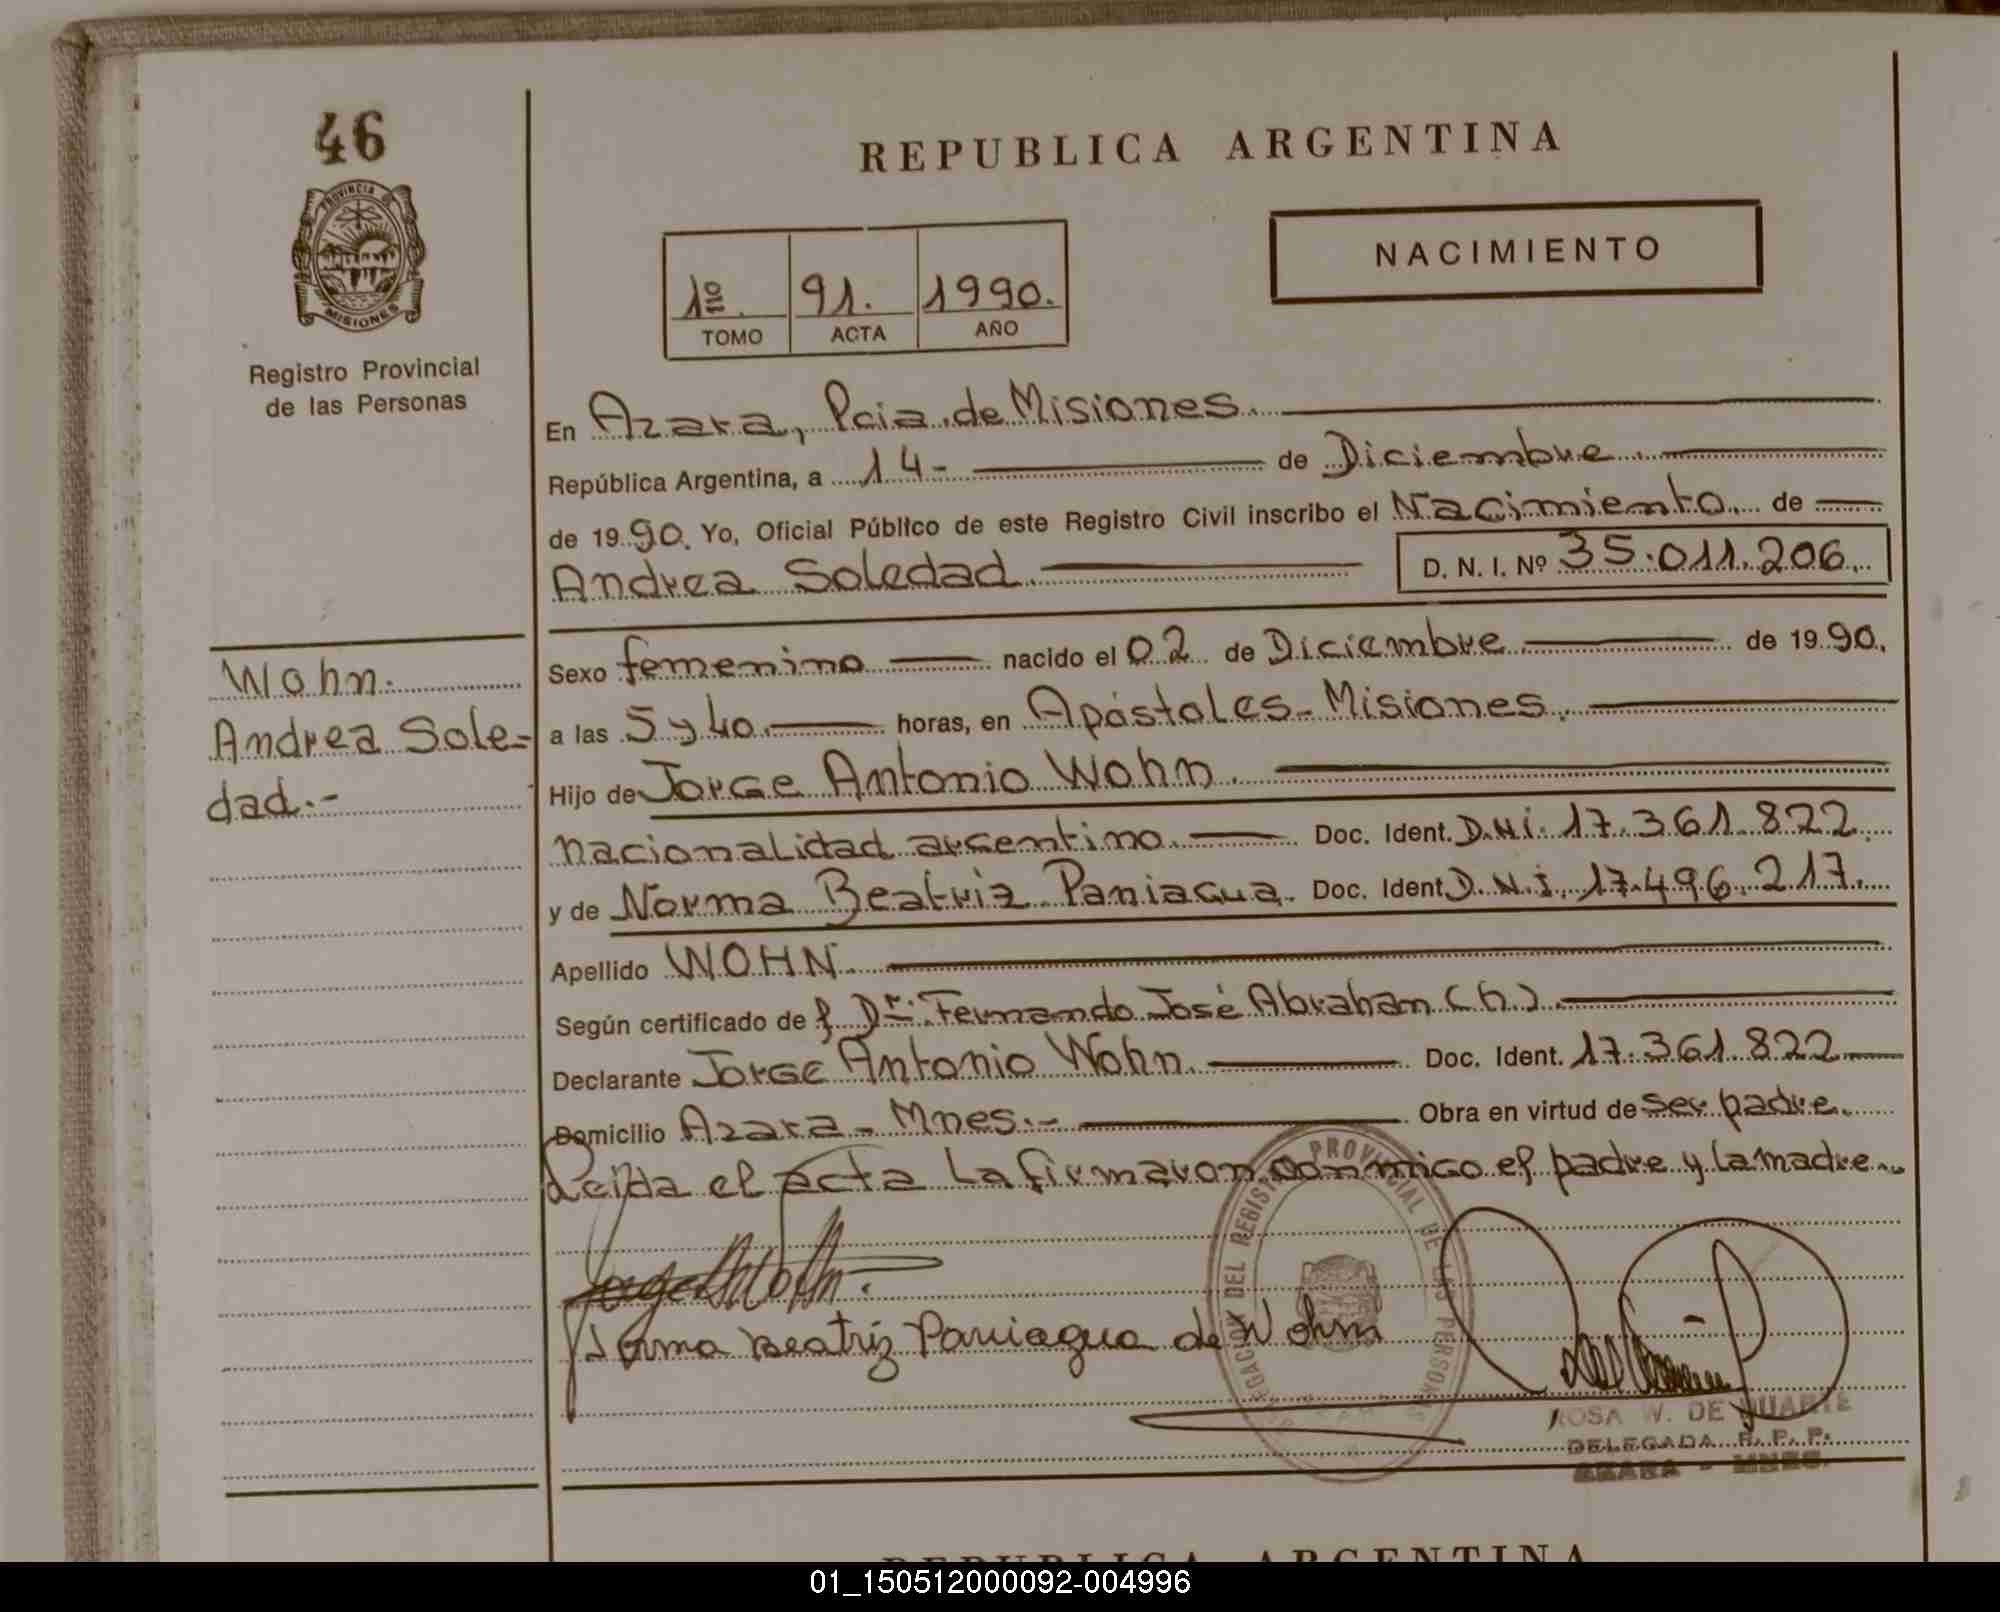 46
PROVINCIA DE
MISIONES
Registro Provincial
de las Personas
REPUBLICA ARGENTINA
1º. 91. 1990.
TOMO ACTA AÑO
NACIMIENTO
En Azara, Pcia. de Misiones.
República Argentina, a 14- de Diciembre
de 1990. Yo, Oficial Público de este Registro Civil inscribo el Nacimiento de
Andrea Soledad D. N. I. Nº 35.011.206.
Wohn.
Andrea Sole-
dad.-
Sexo femenino nacido el 02 de Diciembre de 1990.
a las 5 y 40 horas, en Apóstoles - Misiones.
Hijo de Jorge Antonio Wohn.
nacionalidad argentino. Doc. Ident. D.N.i. 17.361.822.
y de Norma Beatriz Paniagua. Doc. Ident D.N.I. 17.496.217.
Apellido WOHN
Según certificado de f. Dr. Fernando José Abraham (h).
Declarante Jorge Antonio Wohn. Doc. Ident. 17.361.822
Domicilio Azara - Mnes.- Obra en virtud de ser padre.
Leida el acta la firmaron conmigo el padre y la madre.
DELEGACION DEL REGISTRO PROVINCIAL DE LAS PERSONAS
Jorge A Wohn.
Norma Beatriz Paniagua de Wohn
ROSA W. DE DUARTE
DELEGADA R. P. P.
AZARA - MNES.
REPUBLICA ARGENTINA
01_150512000092-004996